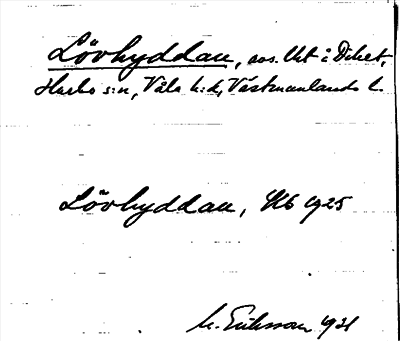 Lövhyddan, avs. lht i Diket,
Harbo s:n, Våla h:d, Västmanlands l.
Lövhyddan, Kb 1925
M. Eriksson 1931